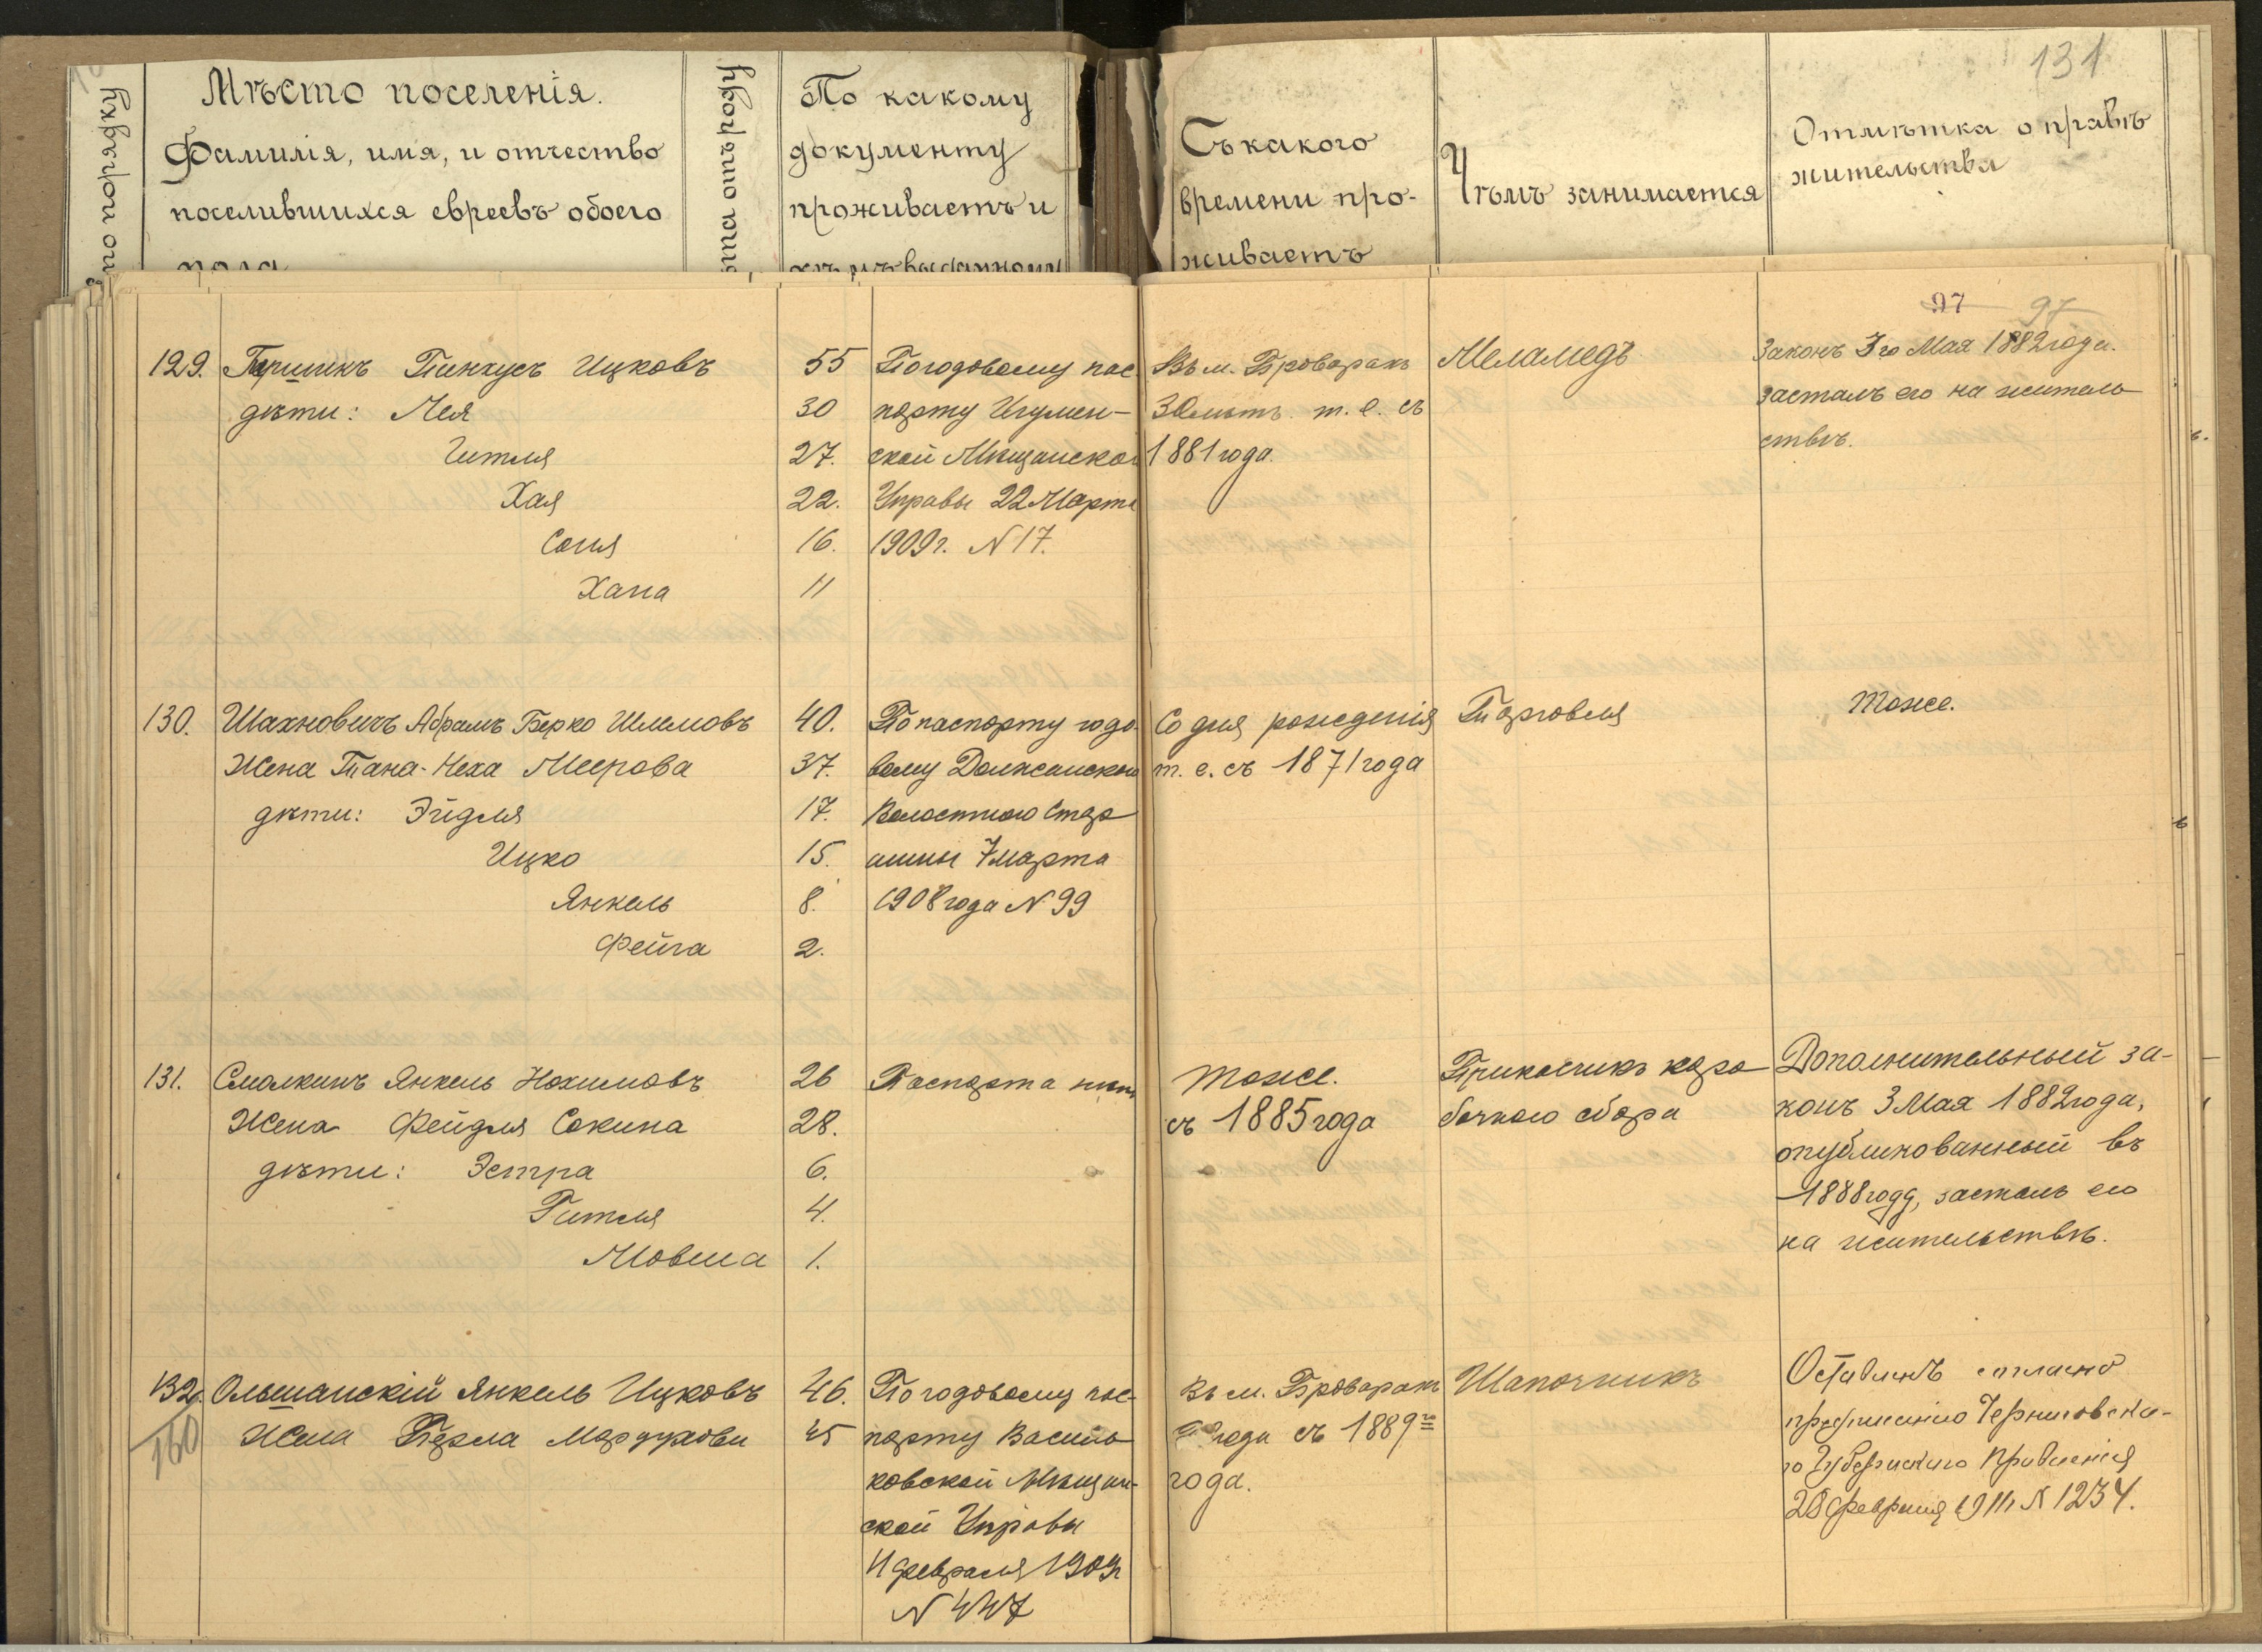 131
по порядку
Мѣсто поселенія.
Фамилія, имя, и отчество
поселившихся евреевъ обоего
пола
отъ роду
По какому
документу
проживаетъ и
выданному
Съ какого
времени про-
живаетъ
Чѣмъ занимается
Отмѣтка о правѣ
жительства
97 97
129. Пинхусъ Ицковъ 55 По годовому пас Въ м. Броварахъ Меламедъ Законъ 3го Мая 1882 года.
дѣти: Лея 30 порту Игумен- 30 лѣтъ т. е. съ засталъ его на житель
Гитля 27. ской Мѣщанской 1881 года. ствѣ.
Хая 22. Управы 22 Марта
Соня 16. 1909 г. N 17.
Хана 11
130. Шахновичъ Абрамъ Берко Шлемовъ 40. По паспорту годо Со дня рожденія Торговля Тоже.
Жена Тана-Неха Меерова 37. вому т. е. съ 1871 года
дѣти: Эйдля 17. Волостного Стар
Ицко 15. шины 7 марта
Янкель 8. 1908 года N 99
Фейга 2.
131. Смолкинъ Янкель Нохимовъ 26 Паспорта нѣтъ Тоже. Прикасчикъ каро Дополнительный за-
Жена Фейдля Сокина 28. съ 1885 года бочного сбора конъ 3 Мая 1882 года,
дѣти: Эстра 6. опубликованный въ
Гитля 4. 1888 году, засталъ его
Мовша 1. на жительствѣ.
132. Ольшанскій Янкель Ицковъ 46. По годовому пас- Въ м. Броварахъ Шапочникъ Оставленъ согласно
160 Жена Мордухова 45 порту Василь года съ 1889го предписанію Черниговска-
ковской Мѣщан- года. го Губернскаго Правленія
ской Управы 28 февраля 1911 N 1234.
февраля 1909г
N